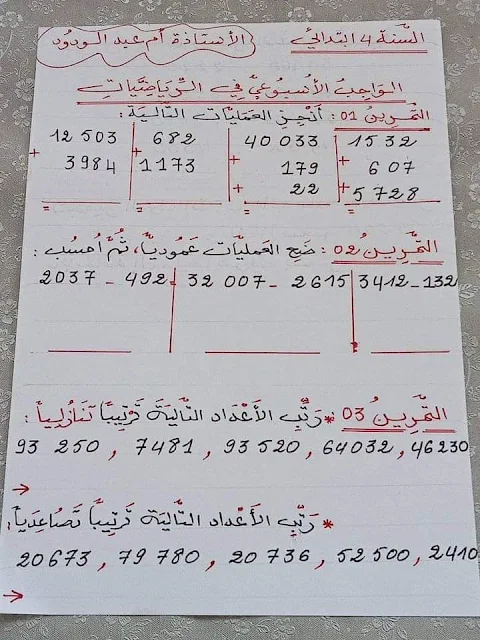 السَّنة 4 ابتدائي
الأستاذة أم عبد الودود
الواجب الأسبوعي في الرياضيات
التمرين 01 : أنجز العمليات التالية :
12 503 + 3984 =
682 + 1173 =
40 033 + 179 + 22 =
1532 + 607 + 5728 =
التمرين 02 : ضع العمليات عموديا، ثم احسب :
2037 - 492
32 007 - 2615
3412 - 132
التمرين 03 : * رتب الأعداد التالية ترتيبا تنازليا :
93 250 , 7481 , 93 520 , 64032 , 46230
→
* رتب الأعداد التالية ترتيبا تصاعديا :
20673 , 79 780 , 20 736 , 52 500 , 2410
→